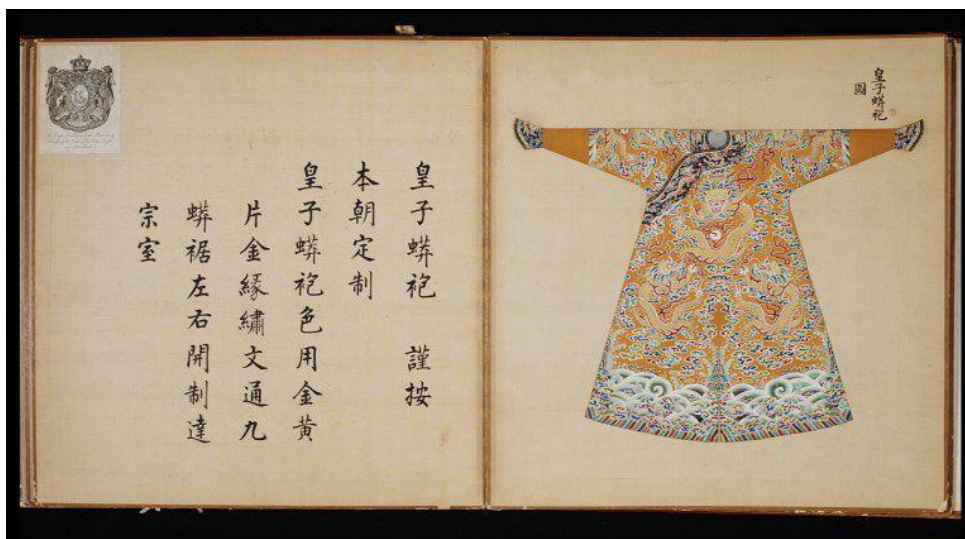 皇子蟒袍
圖
皇子蟒袍 謹按
本朝定制
皇子蟒袍色用金黃
片金緣繡文通九
蟒裾左右開制達
宗室